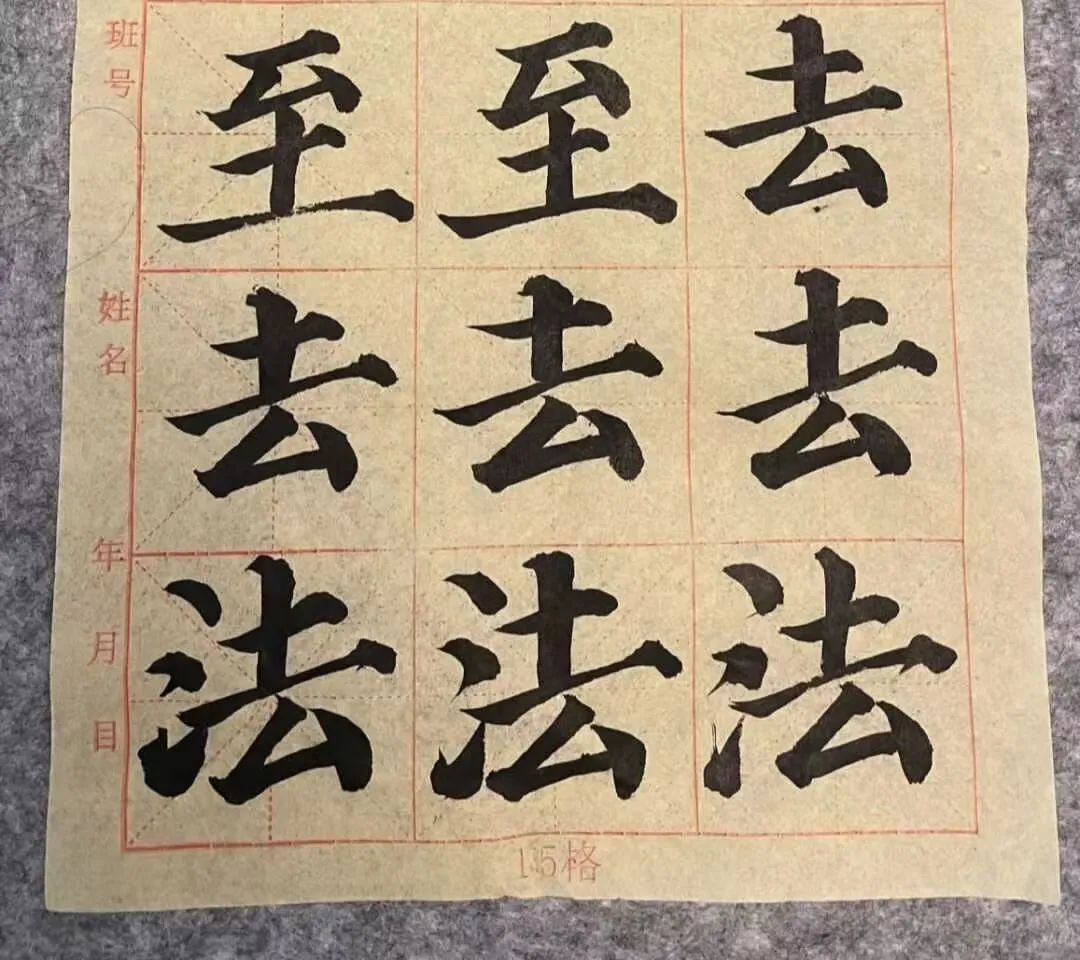 至至去
去去去
法法法
班号
姓名
年月日
15格